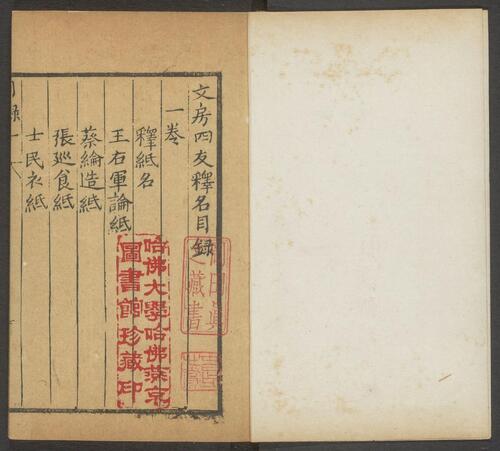 文房四友釋名目録
一卷
釋紙名
王右軍論紙
蔡綸造紙
張廵食紙
士民衣紙
哈佛大學哈佛燕京
圖書館珍藏印
藏書